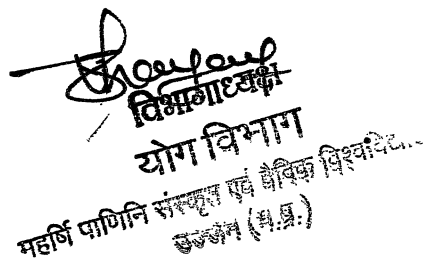 विभागाध्यक्ष
योग विभाग
महर्षि पाणिनि संस्कृत एवं वैदिक
उज्जैन (म.प्र.)